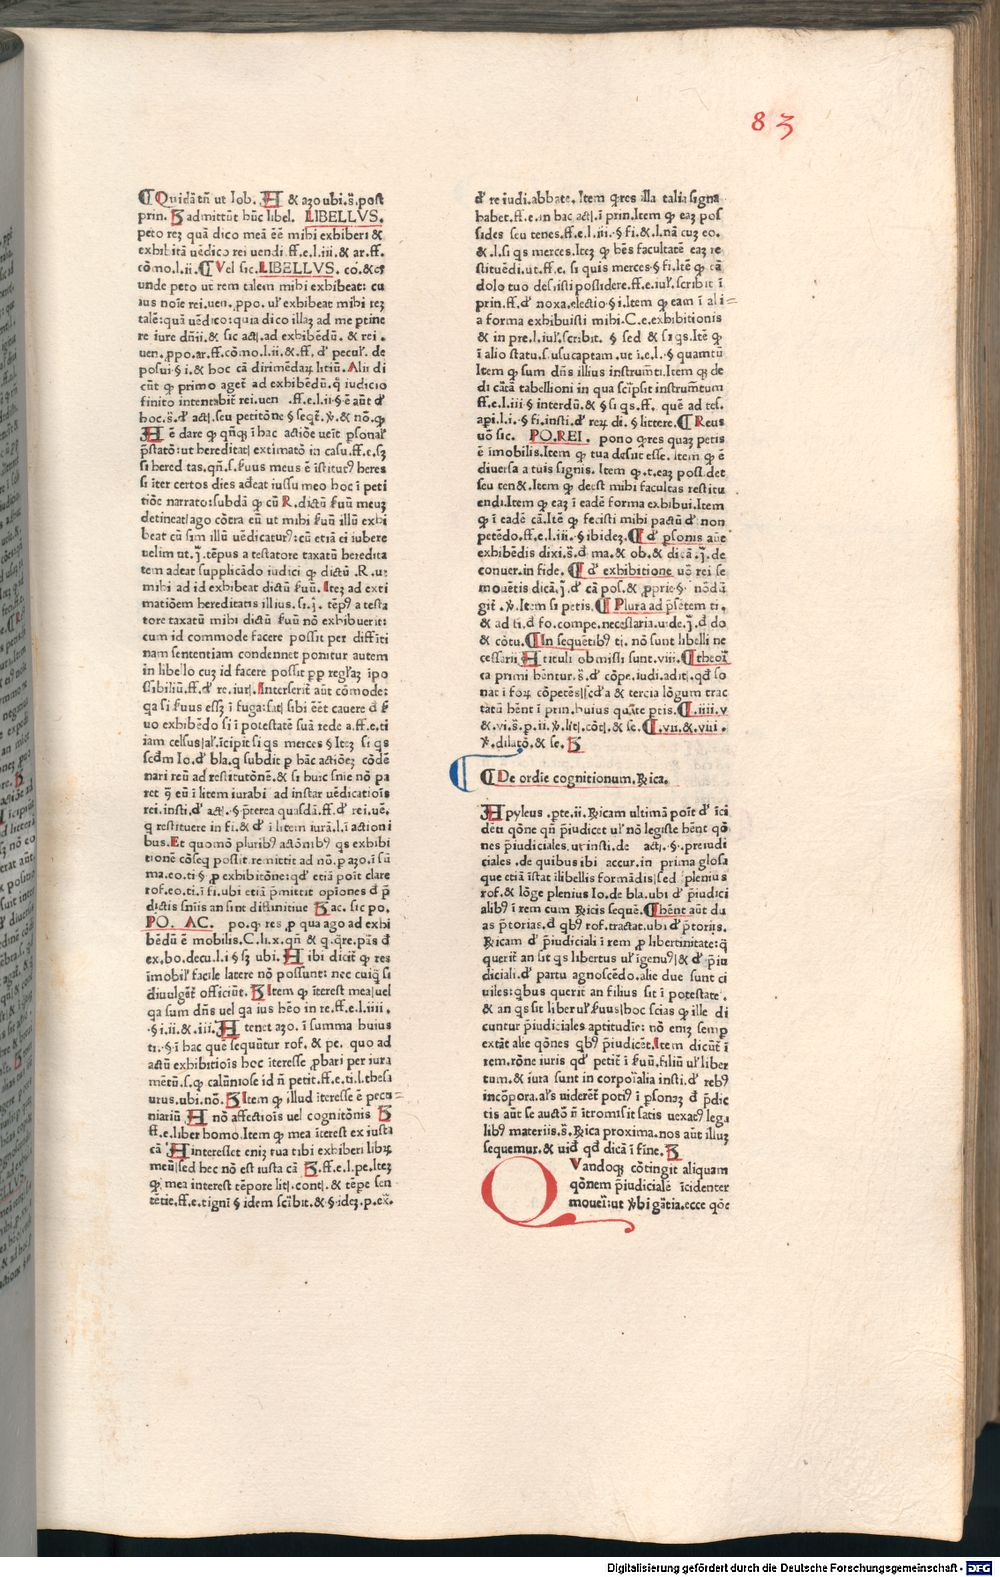 83
¶ Quidā tñ ut Iob. A & azo ubi.s̄.post
prin. B admittūt hūc libel. LIBELLVS.
peto rez quā dico meā ēē mihi exhiberi &
exhibitā uēdico rei uendi ff.e.l.iii.& ar.ff.
cōmo.l.ii. ¶ Vel sic. LIBELLVS. cō.& es
unde peto ut rem talem mihi exhibeat: cu
ius noīe rei.uen.ꝓpo. ul' exhibeat mihi rez
talē:quā uēdico:quia dico illaz ad me ptine
re iure dñii.& sic act.ad exhibēdū. & rei.
uen.ꝓpo.ar.ff.cōmo.l.ii.& ff. đ pecul'. de
posui § i.& hoc cā dirimēdaꝝ litiū. Alii di
cūt qƺ primo aget ad exhibēdū.q̄ iudicio
finito intentabit rei.uen .ff.e.l.ii.§ ē aūt đ
hoc.s̄.đ act.seu petitōne § seqt.ꝟ.& nō.qƺ
A ē dare qƺ qñqƺ ī hac actiōe ueīt ꝑsonal'
p̄statō:ut hereditat extimatō in casu.ff.e.sƺ
si hered tas.qñ.s.ſ'uus meus ē īstitutꝰ heres
si īter certos dies adeat iussu meo hoc ī peti
tiōe narrato:subdā qƺ cū R.dictū ſ'uū meuƺ
detineat ago cōtra eū ut mihi ſ'uū illū exhi
beat cū sim illū uēdicaturꝰ:cū etiā ci iubere
uelim ut.j.tēpus a testatore taxatū heredita
tem adeat supplicādo iudici qƺ dictū .R.u:
mihi ad id exhibeat dictū ſ'uū. Iteƺ ad exti
matiōem hereditatis illius.si.j. tēpꝰ a testa
tore taxatū mihi dictū ſ'uū nō exhibuerit:
cum id commode facere possit per diffiti
nam sententiam condennet ponitur autem
in libello cuƺ id facere possit ꝓp regl'aƺ ipo
ssibiliū.ff.đ re.iur. Interserit aūt cōmode:
qa si ſ'uus essƺ ī fuga:sit sibi ēēt cauere đ ſ'
uo exhibēdo si ī potestatē suā rede a.ff.e.ti
iam celsus al'.īcipit si qs merces § Iteƺ si qs
scdm Io.đ bla.q subdit p hāc actiōeƺ cōdē
nari reū ad restitutōnē.& si huic snīe nō pa
ret q̄ eū ī litem iurabi ad instar uēdicatiōis
rei.insti.đ act.§ p̄terea quasdā.ff.đ rei.uē.
q restituere in fi.& đ ī litem iurā.l.ī actioni
bus. Et quomō pluribꝰ actōnibꝰ qs exhibi
tionē cōseq possit.remittit ad nō.p azo.ī sū
ma.eo.ti § ꝓ exhibitōne:qđ etiā poīt clare
rof.eo.ti.ī fi.ubi etiā p̄mittit opiōnes đ p̄
dictis snīis an sint difinitiue B ac. sic po.
PO. AC. po.qƺ res ꝓ qua ago ad exhi
bēdū ē mobilis.C.li.x.qñ & q.qre.pās đ
ex.bo.decu.l.i § sƺ ubi. A ibi dicit qƺ res
imobil' facile latere nō possunt: nec cuiqƺ si
diuulget officiūt. B Item qƺ īterest mea uel
qa sum dñs uel qa ius hēo in re.ff.e.l.iiii.
.§ i.ii.& .iii. A tenet azo. ī summa huius
ti.§ ī hac quē sequūtur rof. & pe. quo ad
actū exhibitiōis hoc īteresse ꝓbari per iura
mētū.s.qƺ calūniose id ñ petit.ff.e.ti.l.thesa
urus.ubi.nō. B Item qƺ illud īteresse ē pecu=
niariū A nō affectiōis uel cognitōnis B
ff.e.liber homo.Item qƺ mea īterest ex iusta
cā A interesset eniƺ tua tibi exhiberi libꝝ
meū sed hec nō est iusta cā B .ff.e.l.pe.Iteƺ
qƺ mea interest tēpore lit.cont.& tēpe sen
tētie.ff.e.tigni § idem scībit.& § ideƺ.p.ex.
đ re iudi.abbate. Item qƺ res illa talia signa
habet.ff.e.in hac act.ī prin.Item qƺ eaƺ pos
sides seu tenes.ff.e.l.iii.§ fi.& l.nā cuƺ eo.
& .l.si qs merces.Iteƺ qƺ hēs facultatē eaƺ re
stituēdi.ut.ff.e. si quis merces § fi.Itē qƺ cā
dolo tuo desiisti possidere.ff.e.iul'.scribit ī
prin.ff.đ noxa.electio § i.Item qƺ eam ī ali=
a forma exhibuisti mihi.C.e.exhibitionis
& in pre.l.iul'.scribit. § sed & si qs.Itē qƺ
ī alio statu.s.usucaptam.ut ī.e.l.§ quamtū
Item qƺ sum dñs illius instrumti.Item qƺ de
di cātā tabellioni in qua scīpsit instrumtum
ff.e.l.iii § interdū.& § si qs.ff. quē ad tes.
api.l.i.§ fi.insti.đ reꝝ di.§ littere. ¶ Reus
uō sic. PO.REI. pono qƺ res quaƺ petis
ē imobilis.Item qƺ tua desiit esse. Item qƺ ē
diuersa a tuis signis. Item qƺ.t.eaƺ possidet
seu tenet.Item qƺ deest mihi facultas restitu
endi.Item qƺ eaƺ ī eadē forma exhibui.Item
qƺ ī eadē cā.Itē qƺ fecisti mihi pactū đ non
petēdo.ff.e.l.iii.§ ibideƺ. ¶ đ psonis aūt
exhibēdis dixi.s̄.đ ma.& ob.& dicā.j.de
conuer.in fide. ¶ đ exhibitione uō rei se
mouētis dicā.j.đ cā pos.& pprie § nōdū
git.ꝟ.Item si petis. ¶ Plura ad p̄sētem ti.
& ad ti.đ fo.compe.necessaria.uide.j.đ do
& cōtu. ¶ In sequētibꝰ ti. nō sunt libelli ne
cessarii. A tituli obmissi sunt.viii. ¶ theoī
ca primi hēntur.s̄.đ cōpe.iudi.adit.qđ so
nat ī foꝝ cōpetēs sed'a & tercia lōgum trac
tatū hēnt ī prin.huius quāte ptis. ¶ .iiii.v
& .vi.s̄.p.ii.ꝟ.lit.cōt.& se. ¶ .vii.& viii.
ꝟ.dilatō.& se. B
¶ De ordie cognitionum.Rica.
A pyleus .pte.ii.Ricam ultimā poīt đ īci
dēti qōne qñ p̄iudicet ul' nō legiste hēnt qō
nes p̄iudiciales.ut insti.de act.§. preiudi
ciales .de quibus ibi accur.in prima glosa
que etiā īstat ilibellis formādis sed plenius
rof.& lōge plenius Io.de bla.ubi đ p̄iudici
alibꝰ ī rem cum Ricis sequē. ¶ hēnt aūt du
as p̄torias.đ qbꝰ rof.tractat.ubi đ p̄toriis.
Ricam đ p̄iudiciali ī rem ꝓ libertinitate:q̄
querit an sit qs libertus ul' īgenuꝰ & đ p̄iu
diciali.đ partu agnoscēdo.alie due sunt ci
uiles:qbus querit an filius sit ī potestate.
& an qs sit liber ul' ſ'uus hoc scias qƺ ille di
cuntur p̄iudiciales aptitudīe: nō eniƺ semꝑ
extāt alie qōnes qbꝰ p̄iudicēt. Item dicūt ī
rem.rōne iuris qđ petit ī ſ'uū.filiū ul' liber
tum.& iura sunt in corpoīalia insti.đ rebꝰ
incōpora.al's uideret potiꝰ ī psonaƺ đ p̄dic
tis aūt se auctō ñ ītromisit satis uexatꝰ lega
libꝰ materiis.s̄.Rica proxima.nos aūt illuƺ
sequemur.& uiđ qđ dicā ī fine. B
Vandoqƺ cōtingit aliquam
qōnem p̄iudiciale īcidenter
moueri:ut ꝟbi gātia.ecce qōe
Digitalisierung gefördert durch die Deutsche Forschungsgemeinschaft - DFG